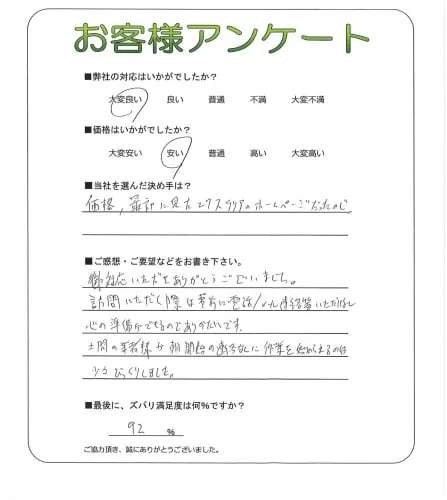 お客様アンケート
■弊社の対応はいかがでしたか?
大変良い 良い 普通 不満 大変不満
■価格はいかがでしたか?
大変安い 安い 普通 高い 大変高い
■当社を選んだ決め手は?
価格，最初に見たエクステリアのホームページだったので。
■ご感想・ご要望などをお書き下さい。
対応いただきありがとうございました。
訪問いただく際は事前に電話/メール連絡等いただけると
心の準備ができるのでありがたいです。
土間の業者様が朝開始の声かけなしに作業を始められるのは
少々びっくりしました。
■最後に、ズバリ満足度は何%ですか?
92 %
ご協力頂き、誠にありがとうございました。